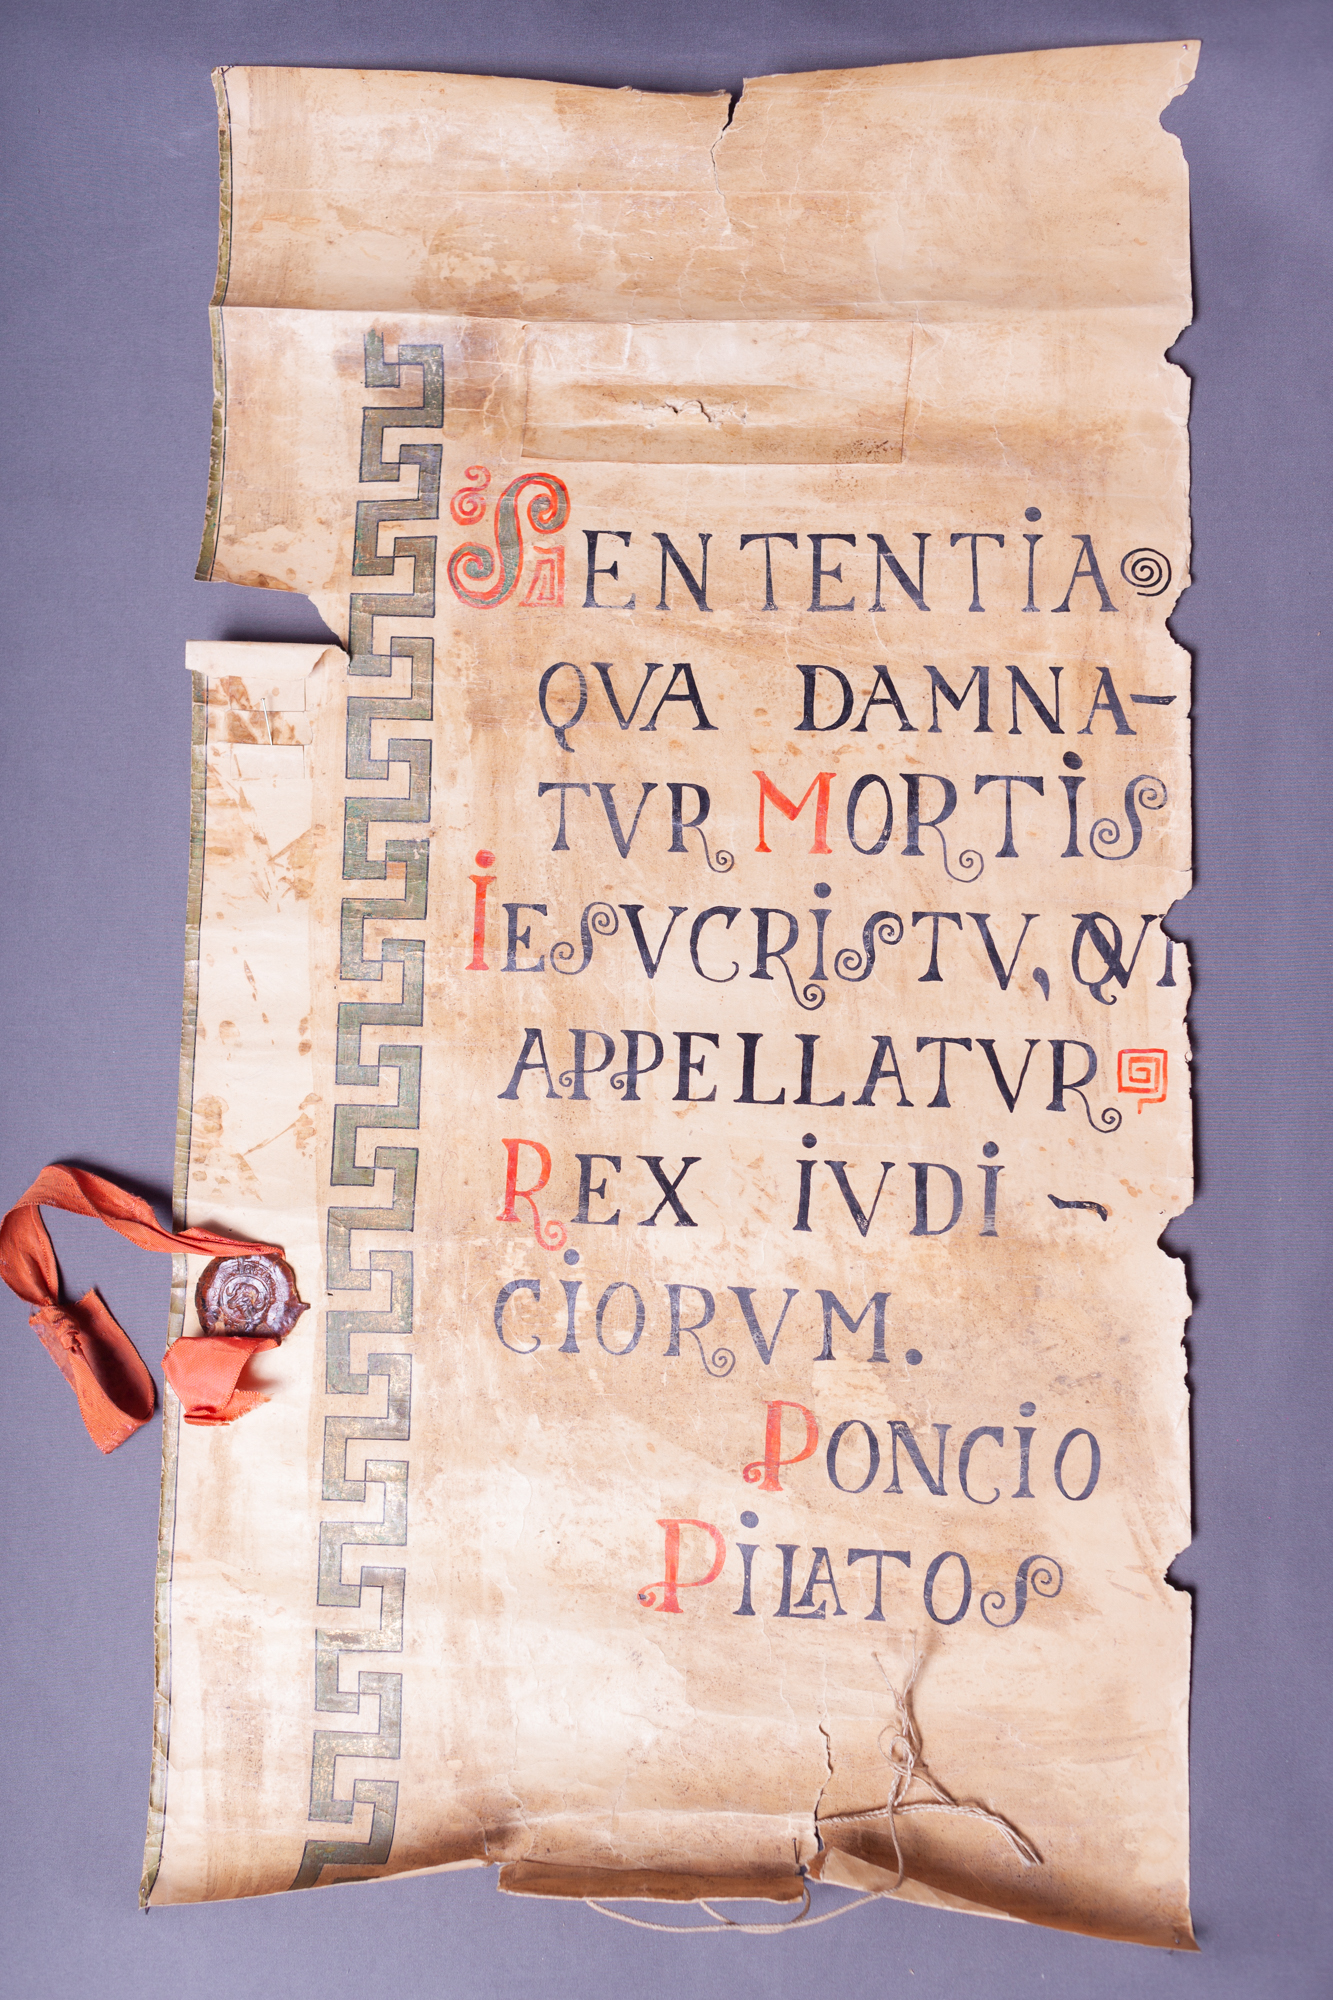 SENTENTIA
QVA DAMNA-
TVR MORTIS
IESVCRISTV, QVI
APPELLATVR
REX IVDI-
CIORVM.
PONCIO
PILATOS